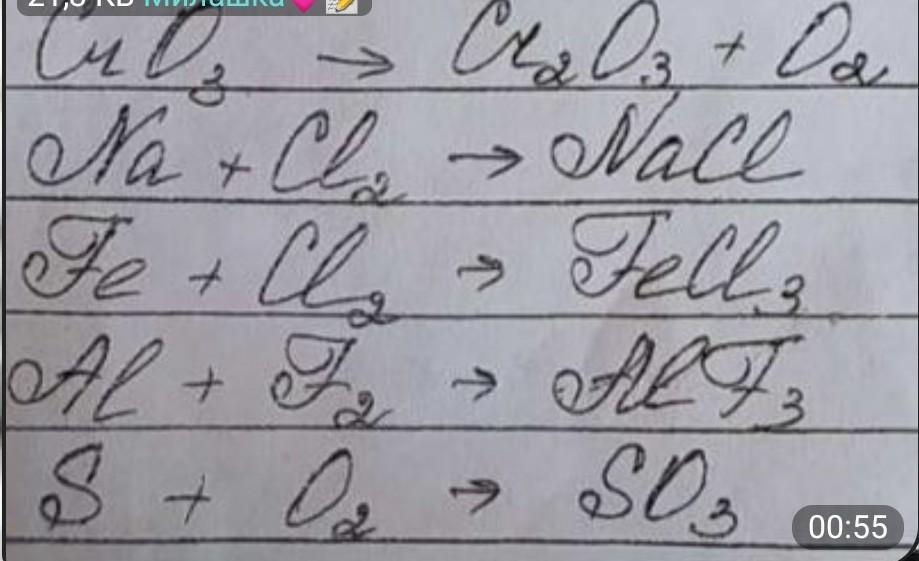 21,8 КБ Милашка💕📝
CrO₃ → Cr₂O₃ + O₂
Na + Cl₂ → NaCl
Fe + Cl₂ → FeCl₃
Al + F₂ → AlF₃
S + O₂ → SO₃
00:55